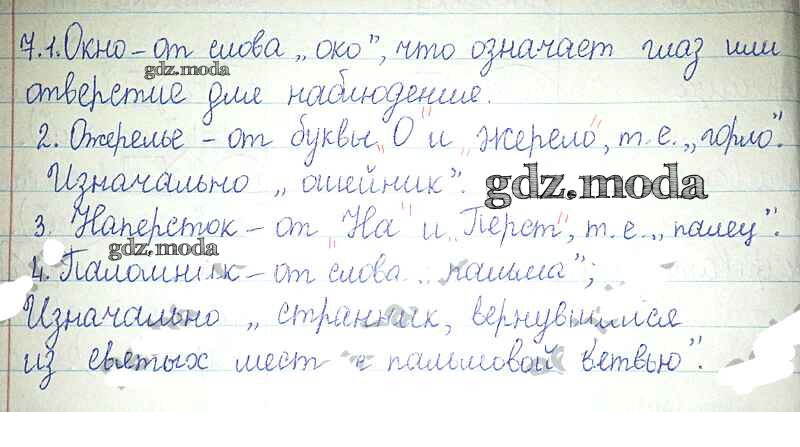 7.1. Окно – от слова „око”, что означает глаз или
gdz.moda
отверстие для наблюдения.
2. Ожерелье – от буквы „О” и „жерело”, т. е. „горло”.
Изначально „ошейник”.
gdz.moda
3. Наперсток – от „На” и „Перст”, т. е. „палец”.
gdz.moda
4. Паломник – от слова „пальма”;
Изначально „странник, вернувшийся
из святых мест с пальмовой ветвью”.